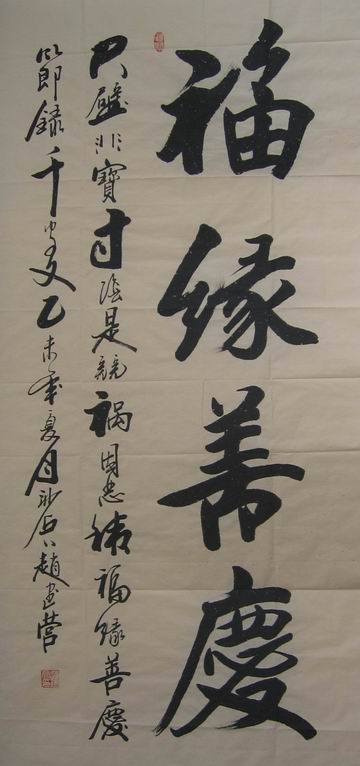 福緣善慶
尺璧非寶寸陰是競禍因惡積福緣善慶
節錄千字文乙未年夏月趙書營